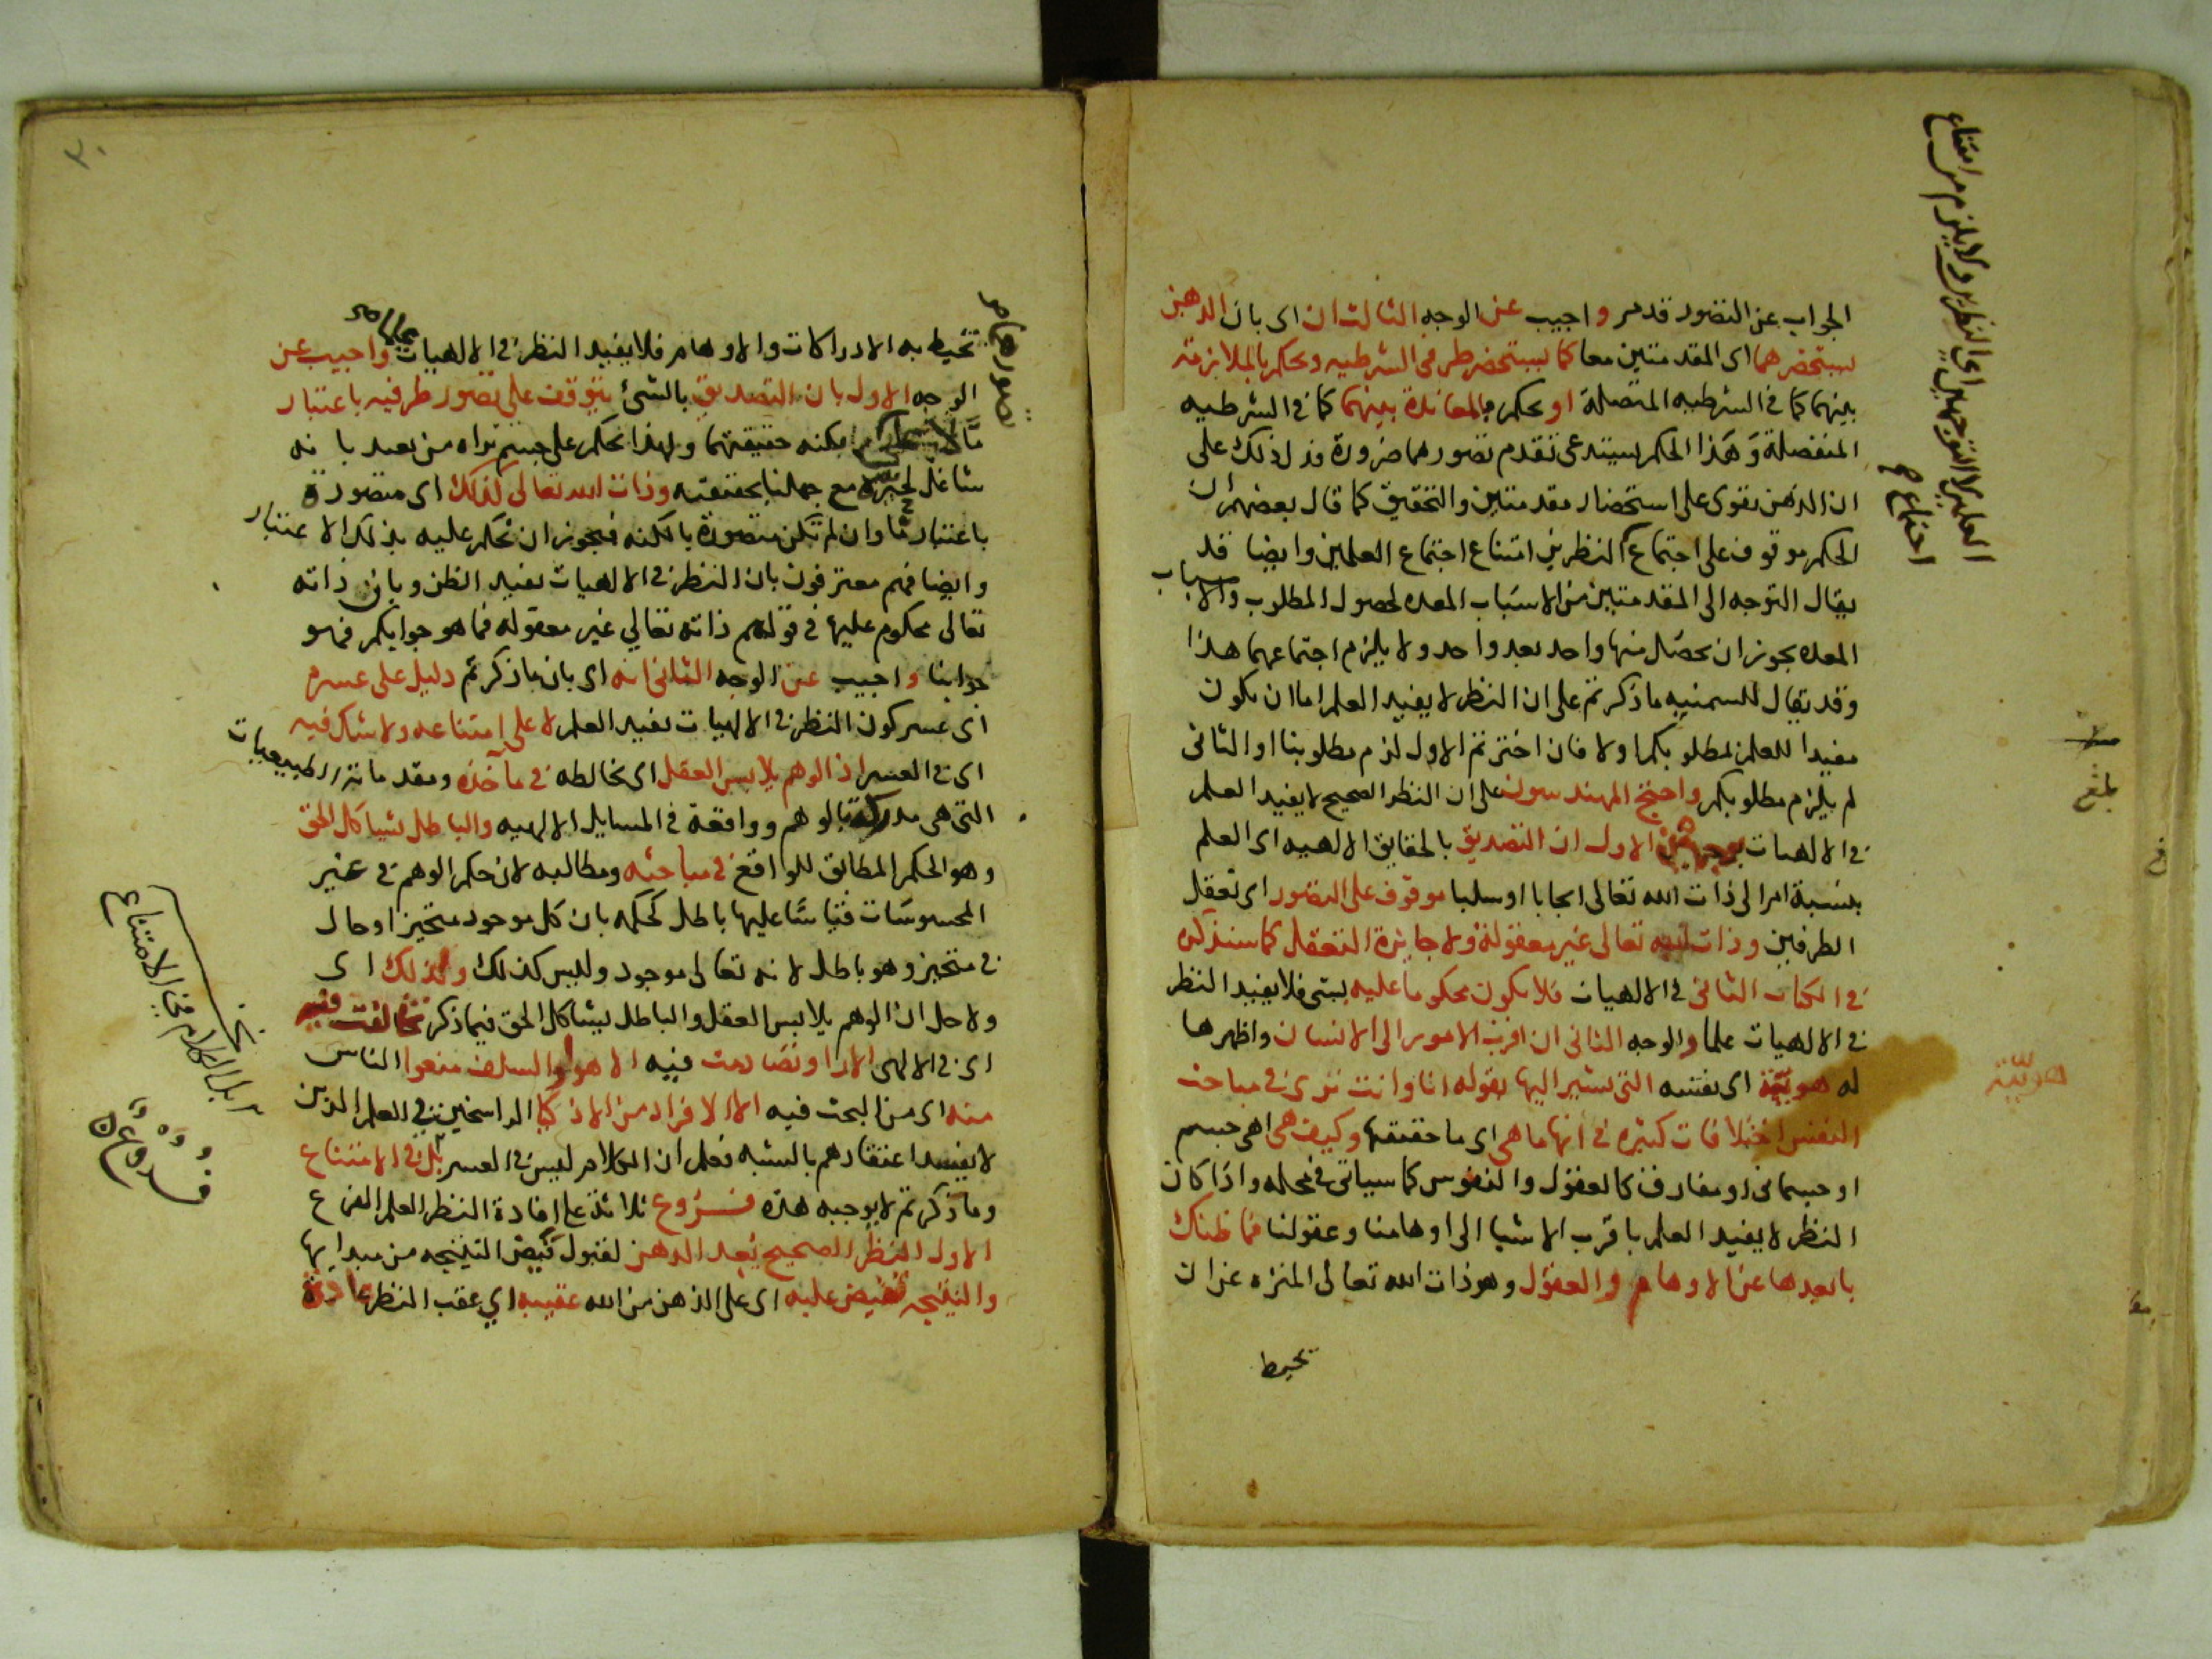 الجواب عن التصور قد مر واجيب عن الوجه الثالث ان اى بان الذهن
يستحضرهما اى المقدمتين معا كما يستحضر طرفى الشرطيه ونحكم بالملازمة
بينهما كما فى الشرطيه المتصلة او نحكم بالمعاندة بينهما كما فى الشرطيه
المنفصلة وهذا الحكم يستدعى تقدم تصورهما ضرورة فدل ذلك على
ان الذهن يقوى على استحضار مقدمتين والتحقيق كما قال بعضهم ان
الحكم موقوف على اجتماع النظرين امتناع اجتماع العلمين وايضا قد
يقال التوجه الى المقدمتين من الاسباب المعده لحصول المطلوب والاسباب
المعده يجوز ان يحصل منها واحد بعد واحد ولا يلزم اجتماعهما هذا
وقد يقال للسمنيه ما ذكرتم على ان النظر لا يفيد العلم اما ان يكون
مفيدا للعلم بمطلوبكم او لا فان اخترتم الاول لزم مطلوبنا او الثانى
لم يلزم مطلوبكم واحتج المهندسون على ان النظر الصحيح لا يفيد العلم
فى الالهيات بوجهين الاول ان التصديق بالحقايق الالهيه اى العلم
بنسبة امر الى ذات الله تعالى ايجابا او سلبا موقوف على التصور اى تعقل
الطرفين وذات الله تعالى غير معقولة ولا جايزة التعقل كما سنذكره
فى الكتاب الثانى فى الالهيات فلا يكون محكوما عليه بشى فلا يفيد النظر
فى الالهيات علما والوجه الثانى ان اقرب الامور الى الانسان واظهرها
له هويته اى نفسه التى يشير اليها بقوله انا وانت ترى فى مباحث
النفس اختلافات كثيره فى انها ما هى اى ما حقيقتها وكيف هى اهى جسم
او جسمانى او مفارق كالعقول والنفوس كما سياتى فى محله واذا كان
النظر لا يفيد العلم باقرب الاشيا الى اوهامنا وعقولنا فما ظنك
بابعدها عن الاوهام والعقول وهو ذات الله تعالى المنزه عن ان
تحيط
العلمين لا التوجهين اى النظرين ولا يلزم من امتناع
اجتماع
بلغ
هويّته
٣٠
تحيط به الادراكات والاوهام فلا يفيد النظر فى الالهيات واجيب عن
الوجه الاول بان التصديق بالشئ يتوقف على تصور طرفيه باعتبار
مّا لا بكنه حقيقتهما ولهذا نحكم على جسم نراه من بعيد بانه
شاغل لحيزه مع جهلنا بحقيقته وذات الله تعالى كذلك اى متصورة
باعتبار ما وان لم تكن متصورة بالكنه فيجوز ان نحكم عليه بذلك الاعتبار
وايضا فهم معترفون بان النظر فى الالهيات يفيد الظن وبان ذاته
تعالى محكوم عليها فى قولهم ذاته تعالي غير معقوله فما هو جوابكم فهو
جوابنا واجيب عن الوجه الثانى انه اى بان ما ذكرتم دليل على عسره
اى عسر كون النظر فى الالهيات يفيد العلم لا على امتناعه ولا شك فيه
اى فى العسر اذ الوهم يلابس العقل اى يخالطه فى مآخذه ومقدماته
التى هى مدركة بالوهم وواقعة فى المسايل الالهيه والباطل يشاكل الحق
وهو الحكم المطابق للواقع فى مباحثه ومطالبه لان حكم الوهم فى غير
المحسوسات قياسًا عليها باطل كحكمه بان كل موجود متحيز او حال
فى متحيز وهو باطل لانه تعالى موجود وليس كذلك ولذلك اى
ولاجل ان الوهم يلابس العقل والباطل يشاكل الحق فيما ذكر تخالفت فيه
اى فى الالهى الارا وتصادمت فيه الاهوا والسلف منعوا الناس
منه اى من البحث فيه الا الافراد من الاذكيا الراسخين فى العلم الذين
لا يفسد اعتقادهم بالشبه فعلم ان الكلام ليس فى العسر بل فى الامتناع
وما ذكرتم لا يوجبه هذه فروع ثلاثة على افادة النظر العلم الفرع
الاول النظر الصحيح يُعِد الذهن لقبول فيض النتيجه من مبدايها
والنتيجه تفيض عليه اى على الذهن من الله عقيبه اي عقب النظر عادة
تصورهما
بل الكلام فى الامتناع
فروع